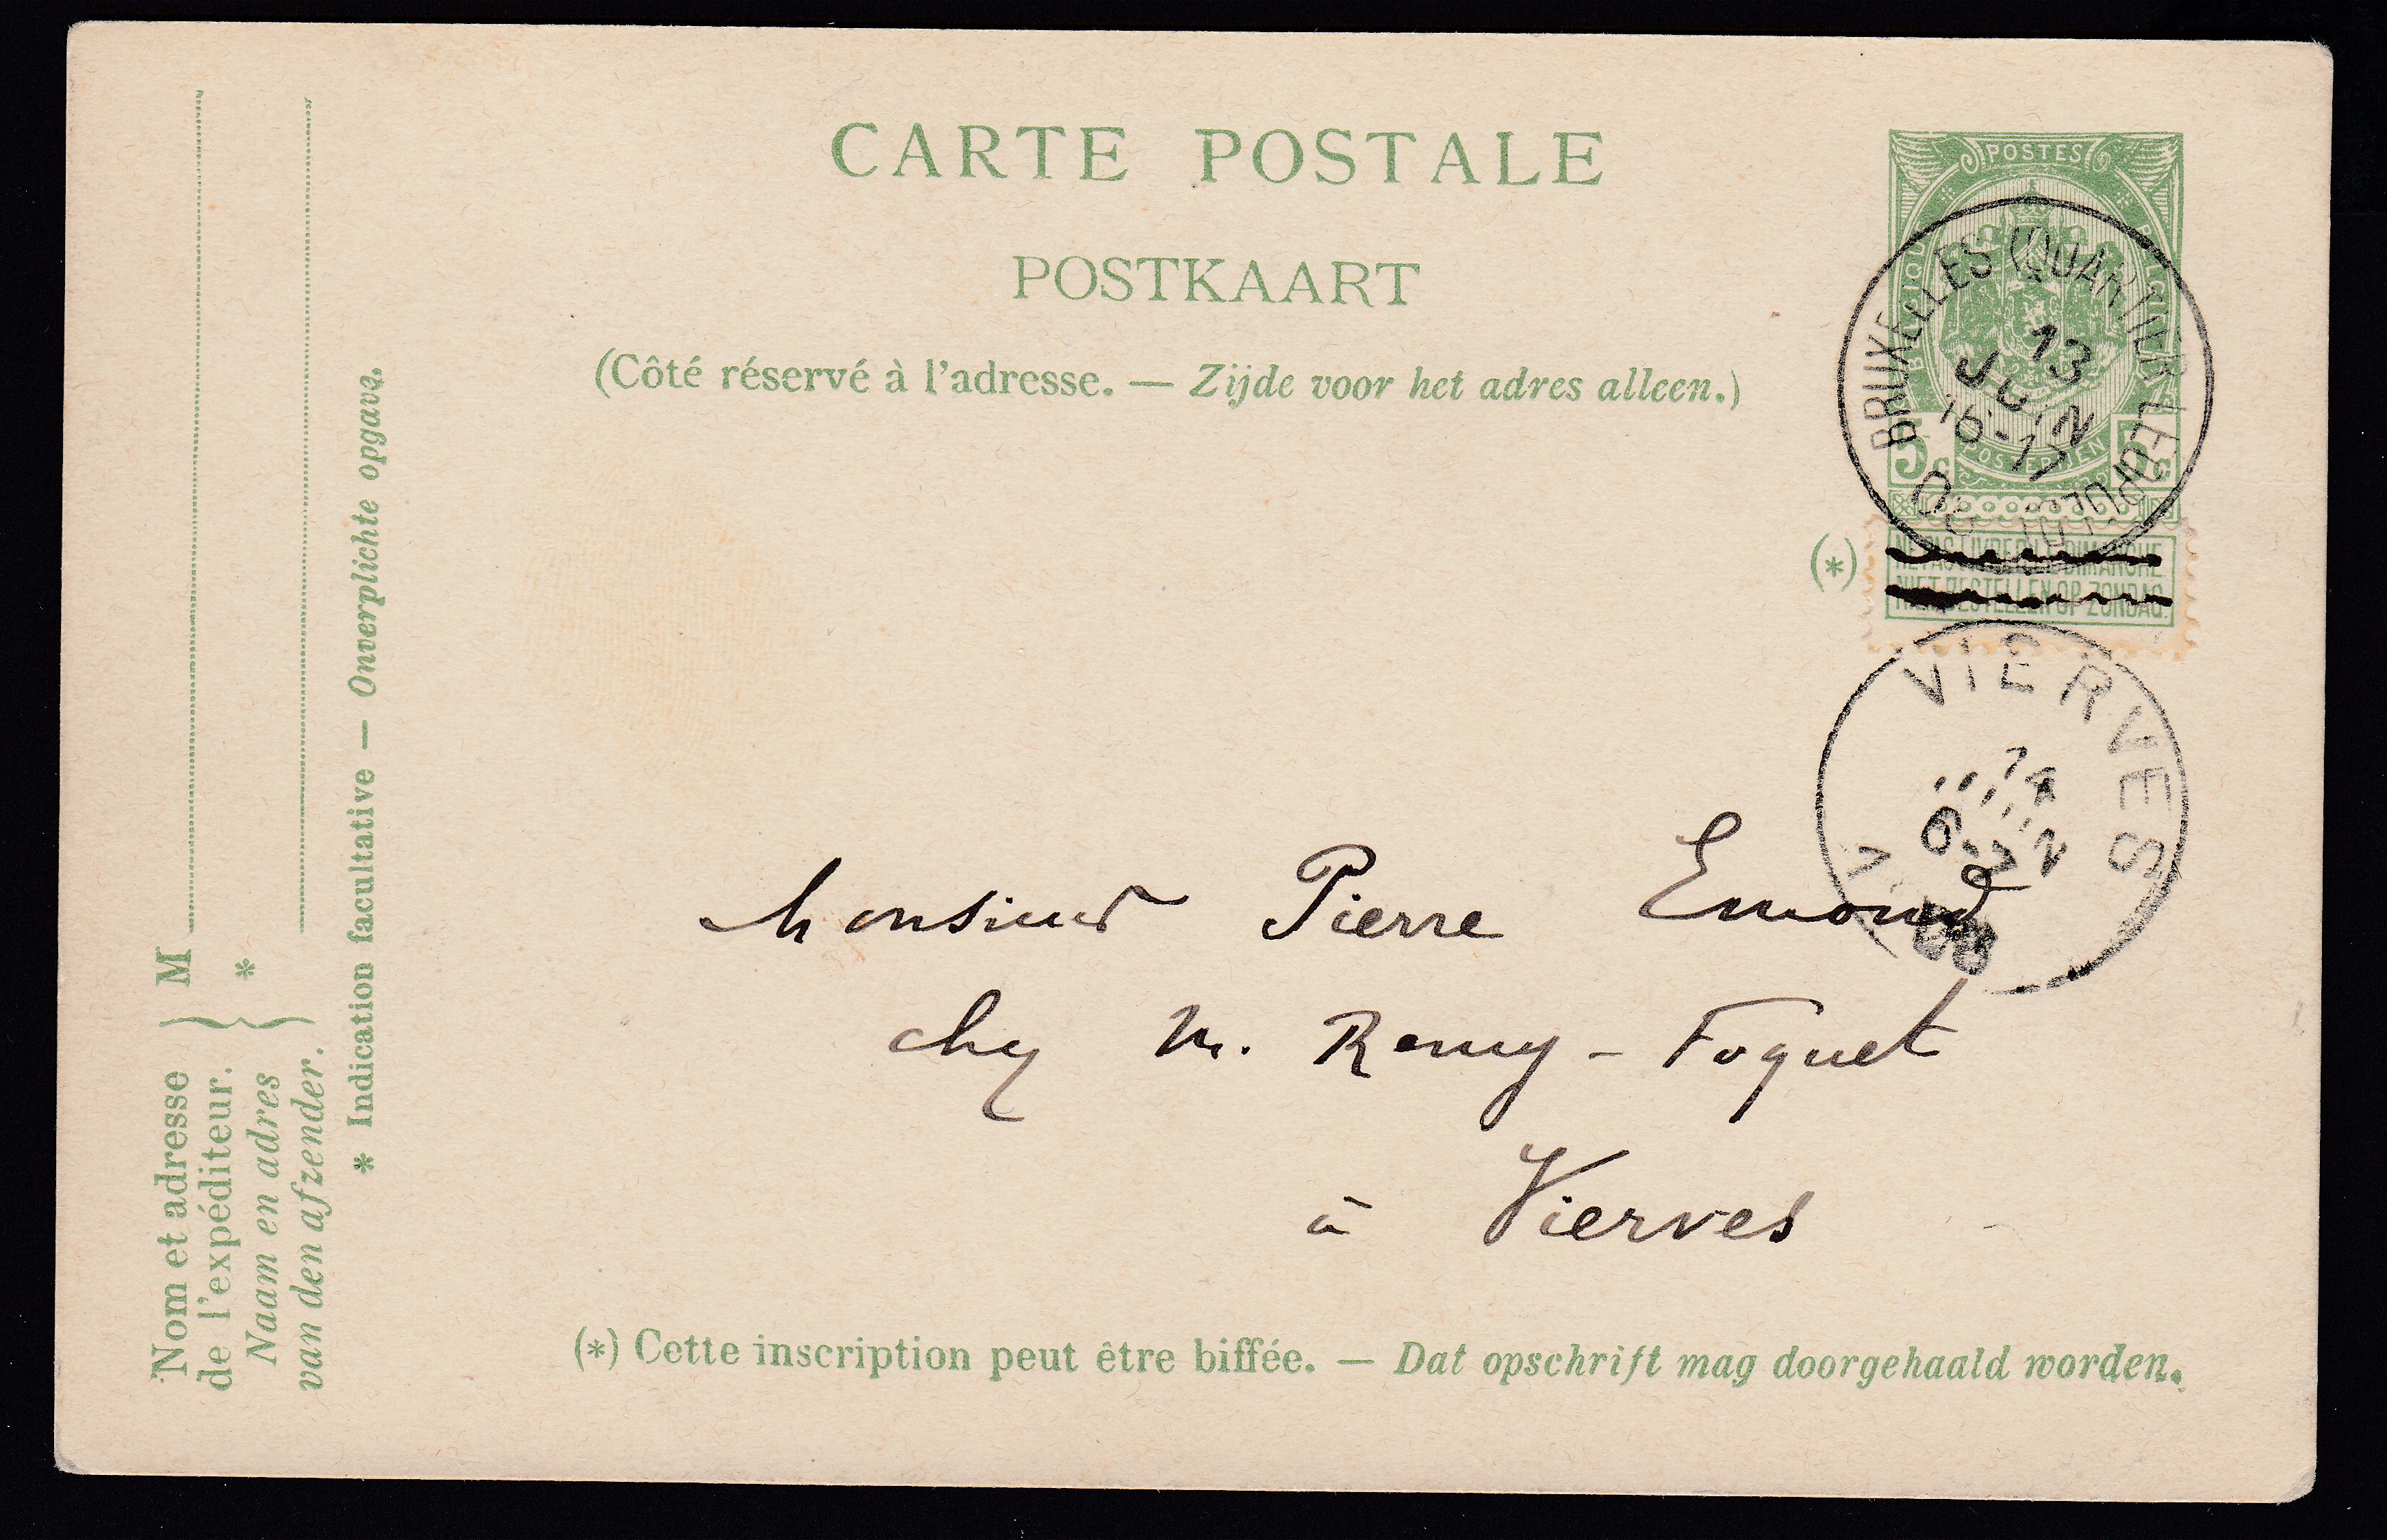 CARTE POSTALE
POSTKAART
(Côté réservé à l'adresse. — Zijde voor het adres alleen.)
POSTES
5c 5c
BRUXELLES (QUARTIER LEOPOLD)
13
JUIN
16-17
(*)
NE PAS LIVRER LE DIMANCHE.
NIET BESTELLEN OP ZONDAG.
VIERVES
14
6-7
08
Monsieur Pierre Emond
chez M. Remy - Foquet
à Vierves
(*) Cette inscription peut être biffée. — Dat opschrift mag doorgehaald worden.
Nom et adresse
de l'expéditeur.
Naam en adres
van den afzender.
} M
*
* Indication facultative — Onverplichte opgave.